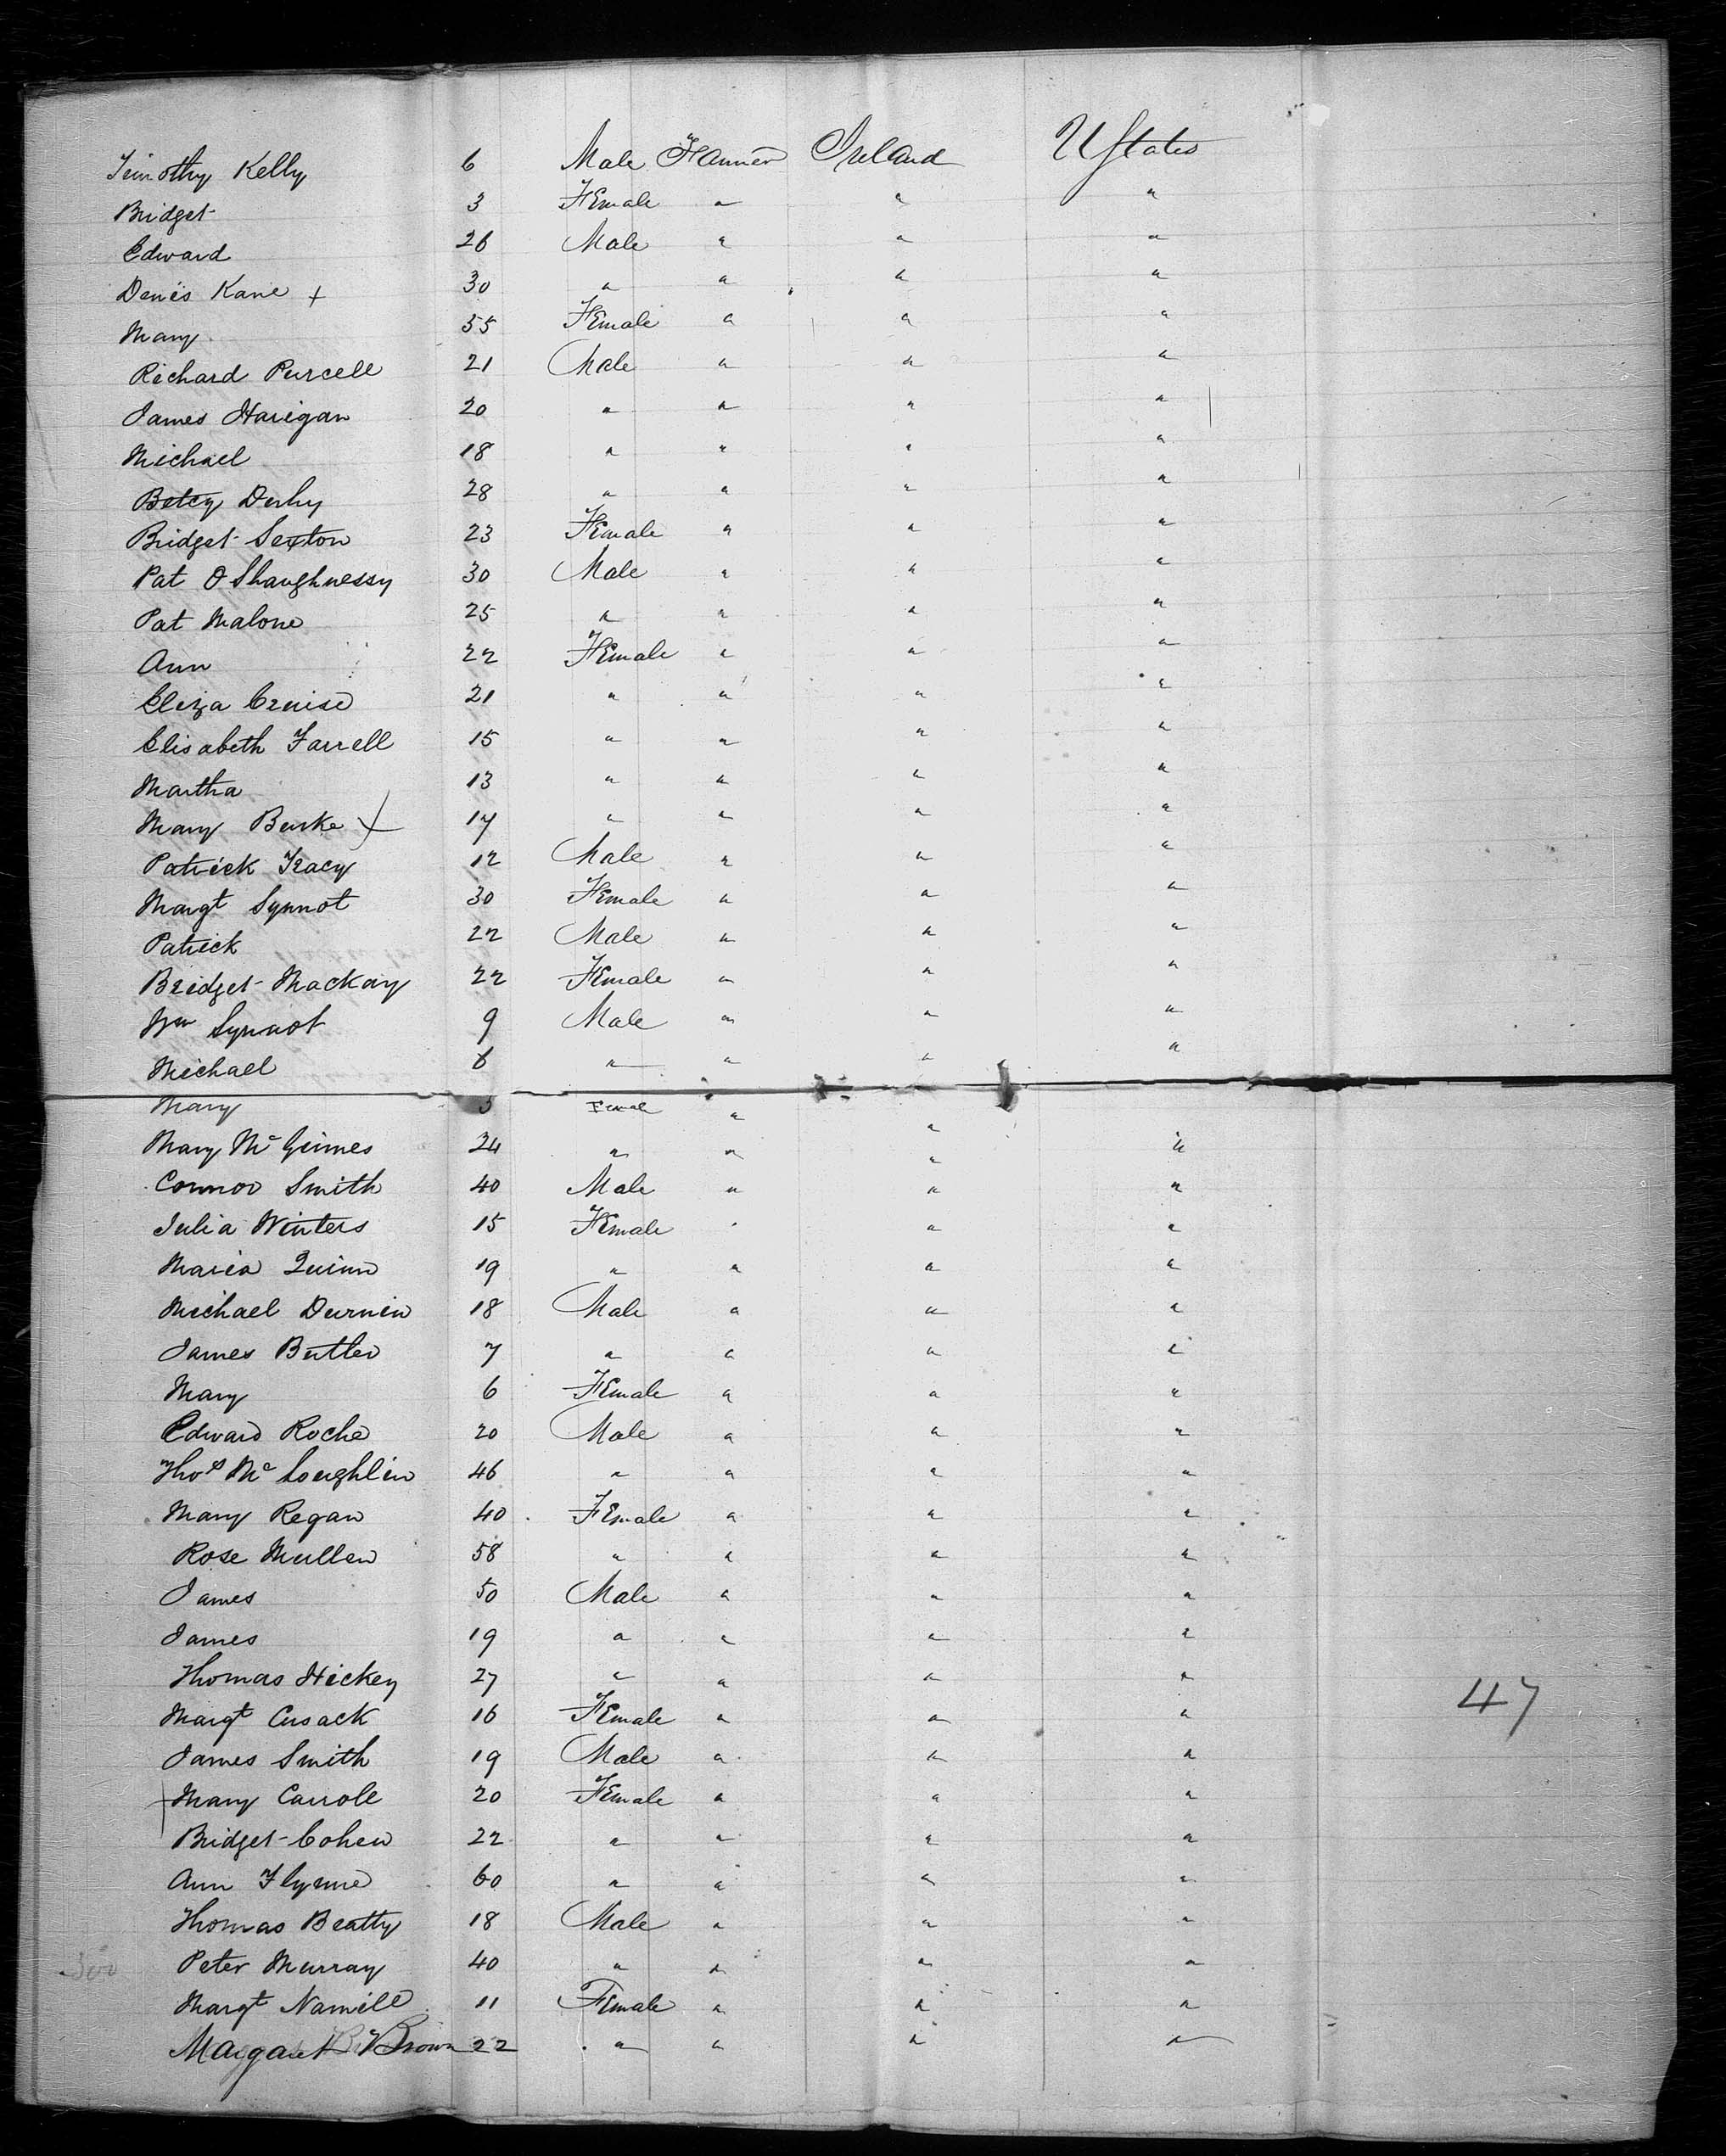 Timothy Kelly 6 Male Farmer Ireland U States
Bridget 3 Female " " "
Edward 26 Male " " "
Denis Kane + 30 " " " "
Mary 55 Female " " "
Richard Purcell 21 Male " " "
James Harigan 20 " " " "
Michael 18 " " " "
Betcy Derhy 28 " " " "
Bridget Sexton 23 Female " " "
Pat O Shaughnessy 30 Male " " "
Pat Malone 25 " " " "
Ann 22 Female " " "
Eliza Cruise 21 " " " "
Elisabeth Farrell 15 " " " "
Martha 13 " " " "
Mary Burke + 17 " " " "
Patrick Tracy 12 Male " " "
Margt Synnot 30 Female " " "
Patrick 22 Male " " "
Bridget Mackay 22 Female " " "
Wm Synnot 9 Male " " "
Michael 6 " " " "
Mary 3 Female " " "
Mary Mc Grimes 24 " " " "
Connor Smith 40 Male " " "
Julia Winters 15 Female " " "
Maria Quinn 19 " " " "
Michael Durnin 18 Male " " "
James Butler 7 " " " "
Mary 6 Female " " "
Edward Roche 20 Male " " "
Thos Mc Loughlin 46 " " " "
Mary Regan 40 Female " " "
Rose Mullen 58 " " " "
James 50 Male " " "
James 19 " " " "
Thomas Hickey 27 " " " "
Margt Cusack 16 Female " " "
James Smith 19 Male " " "
+ Mary Carroll 20 Female " " "
Bridget Cohen 22 " " " "
Ann Flynne 60 " " " "
Thomas Beatty 18 Male " " "
300 Peter Murray 40 " " " "
Margt Namill 11 Female " " "
Margaret Brown 22 " " " "
47